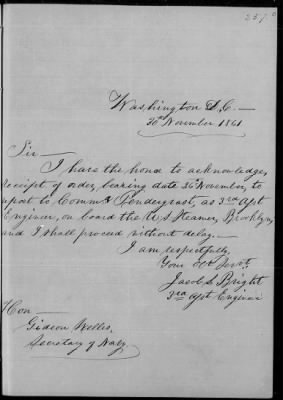 237
Washington D.C.—
30th November 1861
Sir—
I have the honor to acknowledge,
receipt of order, bearing date 26 November, to
report to Commo. Pendergrast, as 3rd Asst
Engineer, on board the U.S. Steamer, Brooklyn,
and I shall proceed without delay.—
I am respectfully,
Your Obt Servt.
Jacob L. Bright
3rd Asst Engineer
Hon—
Gideon Welles,
Secretary of Navy.